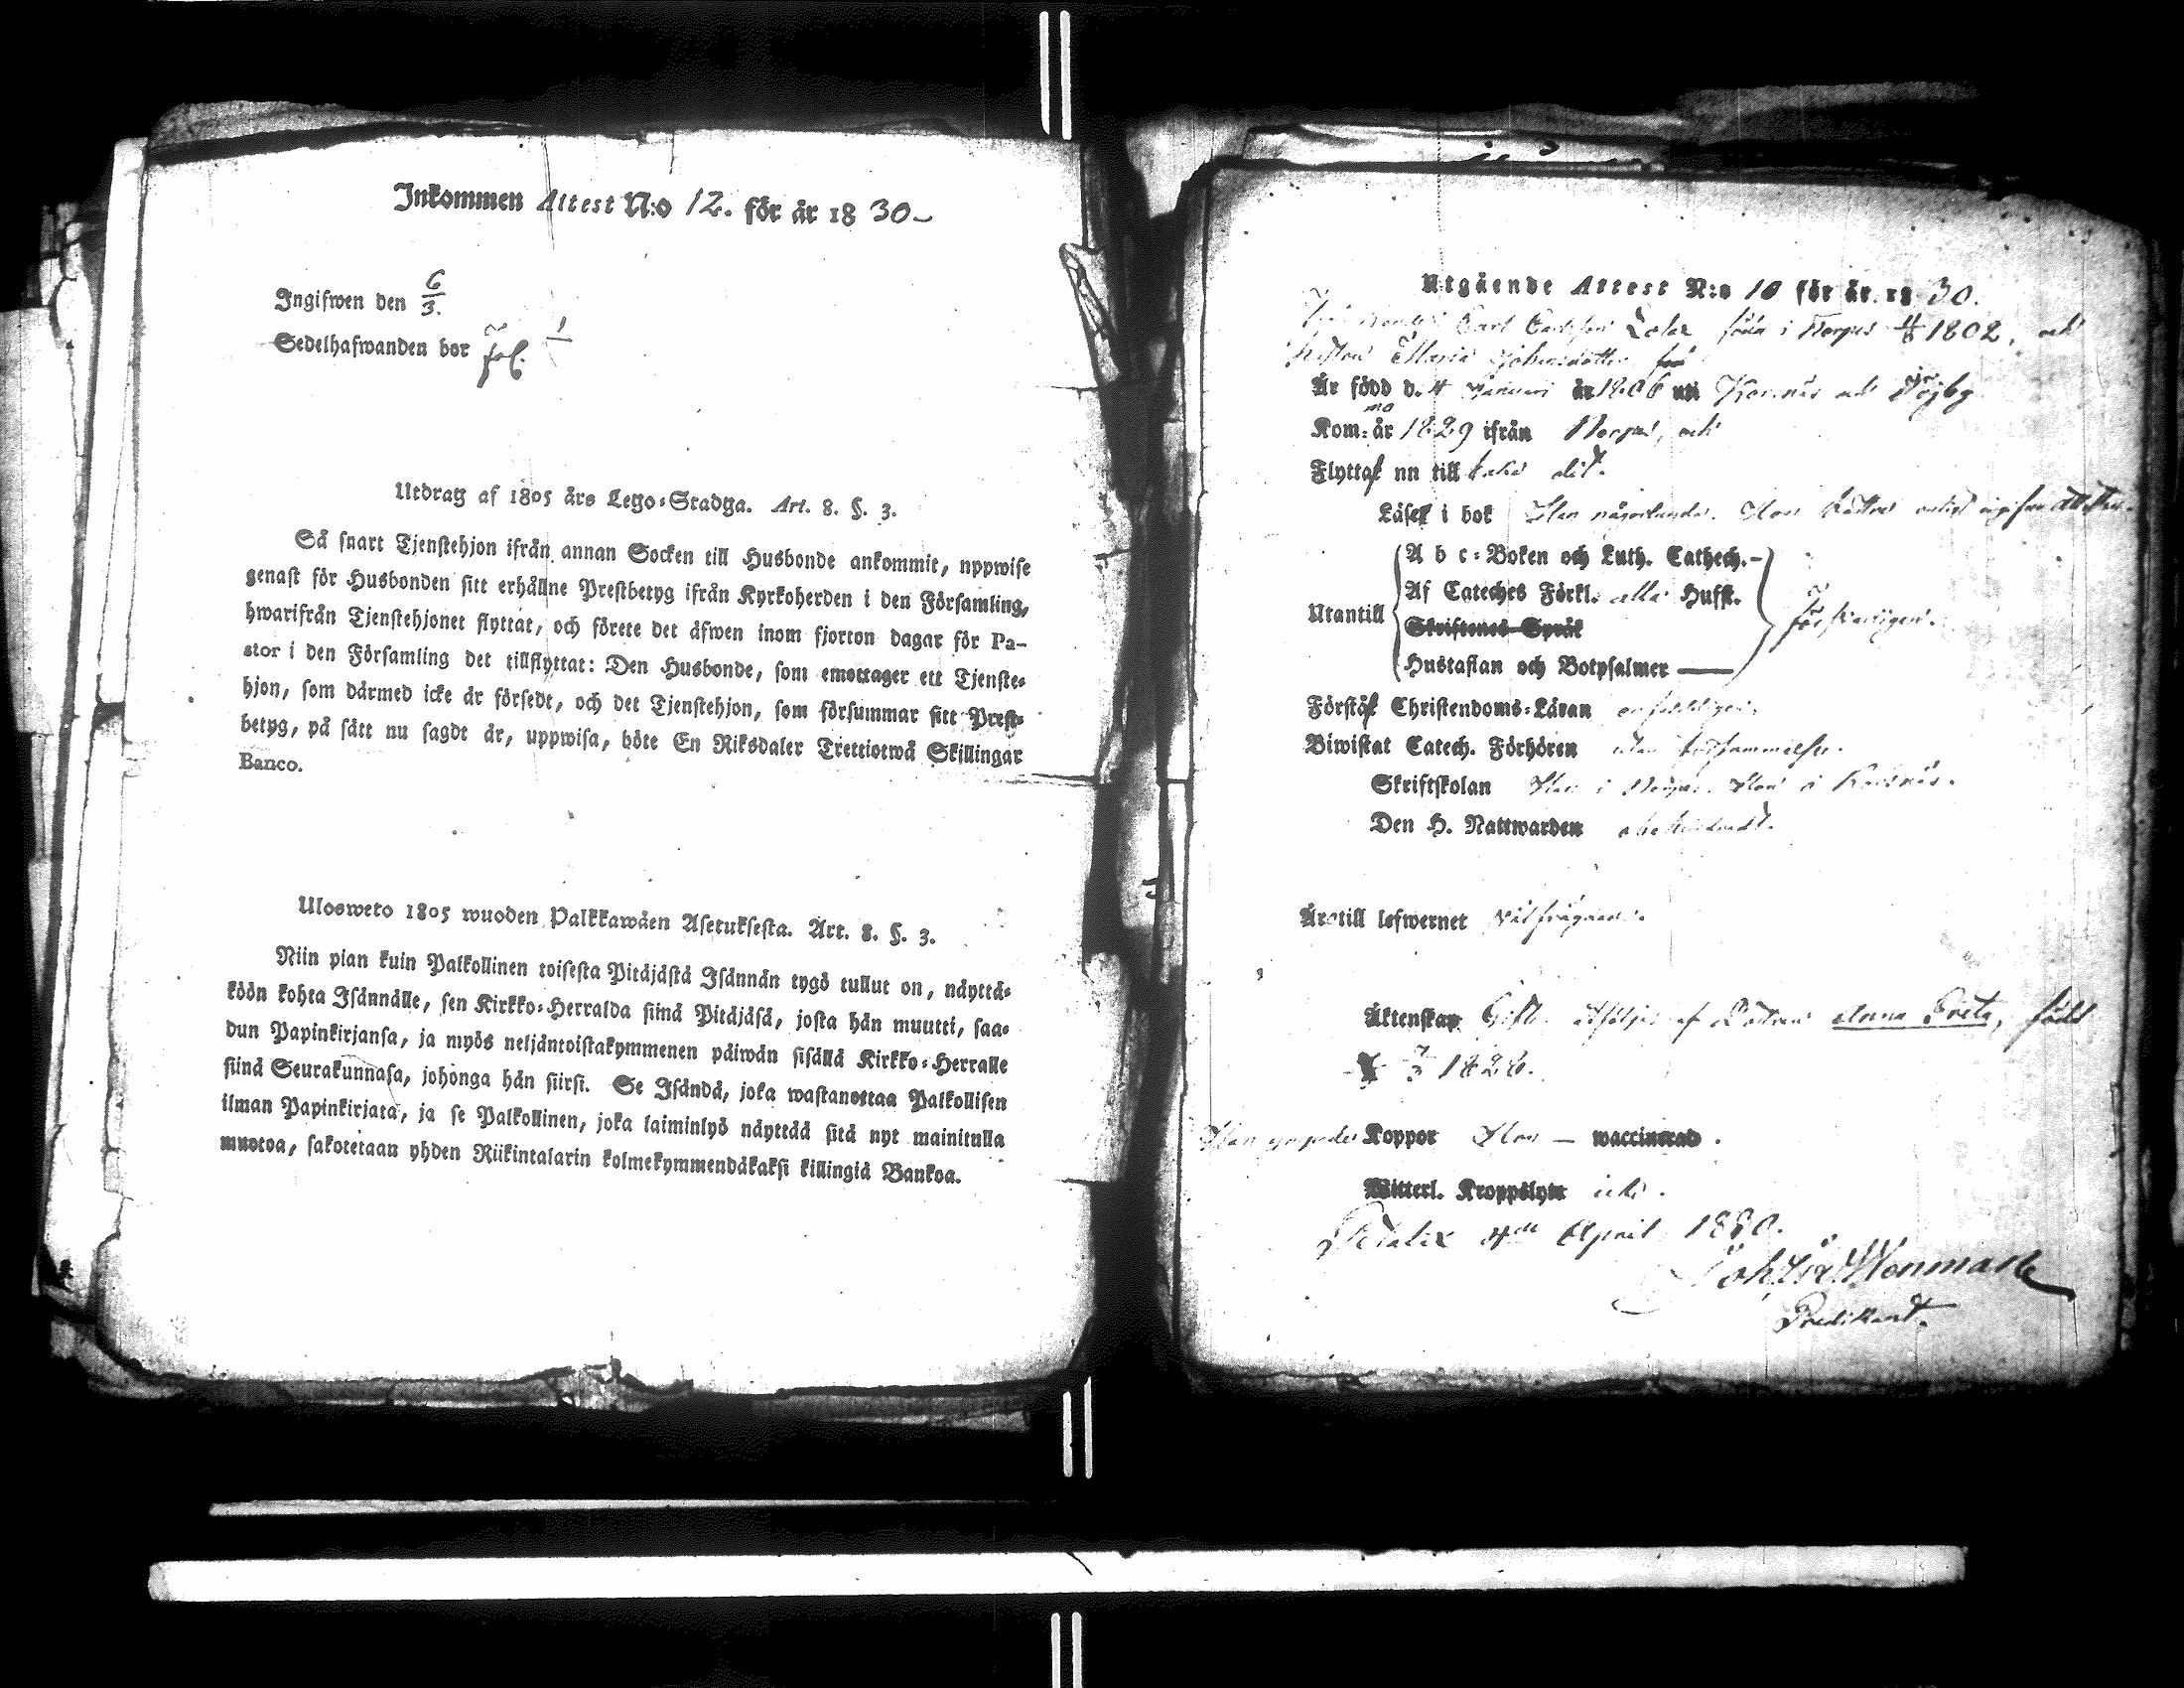 Inkommen Attest N:o 12. för år 18 30–
Ingifwen den 6/3.
Sedelhafwanden bor fol.
Utdrag af 1805 års Lego=Stadga. Art. 8. §. 3.
Så snart Tjenstehjon ifrån annan Socken till Husbonde ankommit, uppwise
genast för Husbonden sitt erhållne Prestbetyg ifrån Kyrkoherden i den Församling,
hwarifrån Tjenstehjonet flyttat, och förete det äfwen inom fjorton dagar för Pa-
stor i den Församling det tillflyttat: Den Husbonde, som emottager ett Tjenste=
hjon, som därmed icke är försedt, och det Tjenstehjon, som försummar sitt Prest=
betyg, på sätt nu sagdt är, uppwisa, böte En Riksdaler Trettiotwå Skillingar
Banco.
Ulosweto 1805 wuoden Palkkawäen Asetuksesta. Art. 8. §. 3.
Niin pian kuin Palkollinen toisesta Pitäjästä Isännän tygö tullut on, näyttä=
köön kohta Isännälle, sen Kirkko=Herralda siinä Pitäjäsä, josta hän muutti, saa=
dun Papinkirjansa, ja myös neljäntoistakymmenen päiwän sisällä Kirkko=Herralle
siinä Seurakunnasa, johonga hän siirsi. Se Isändä, joka wastanottaa Palkollisen
ilman Papinkirjata, ja se Palkollinen, joka laiminlyö näyttää sitä nyt mainitulla
muotoa, sakotetaan yhden Riikintalarin kolmekymmendäkaksi killingiä Bankoa.
Utgående Attest N:o 10 för år 18 30.
Carl Carlsson född i Norpus 1802, och
hustru Maria Johansdotter
Är född d. 4 Januari år 1806 uti Kornäs och Böjby
Kom: år 1829 ifrån Norpus, och
Flytta nu till dit.
Läser i bok Han någorlunda. Hon
Utantill
A b c=Boken och Luth. Cathech.–
Af Cateches Förkl. alla Hufst.
Skriftenes Språk
Hustaflan och Botpsalmer ——
försvarligen.
Förstå Christendoms=Läran enfaldigen.
Biwistat Catech. Förhören utan försummelse.
Skriftskolan Han i Hon i
Den H. Nattwarden obehindradt.
Är till lefwernet välfrägdade.
Äktenskap Gift. åtföljes af Dottren Anna Greta, född
7/3 1828.
Han Koppor Hon — waccinerad.
Witterl. Kroppslyte icke.
4de April 1830.
Predikant.